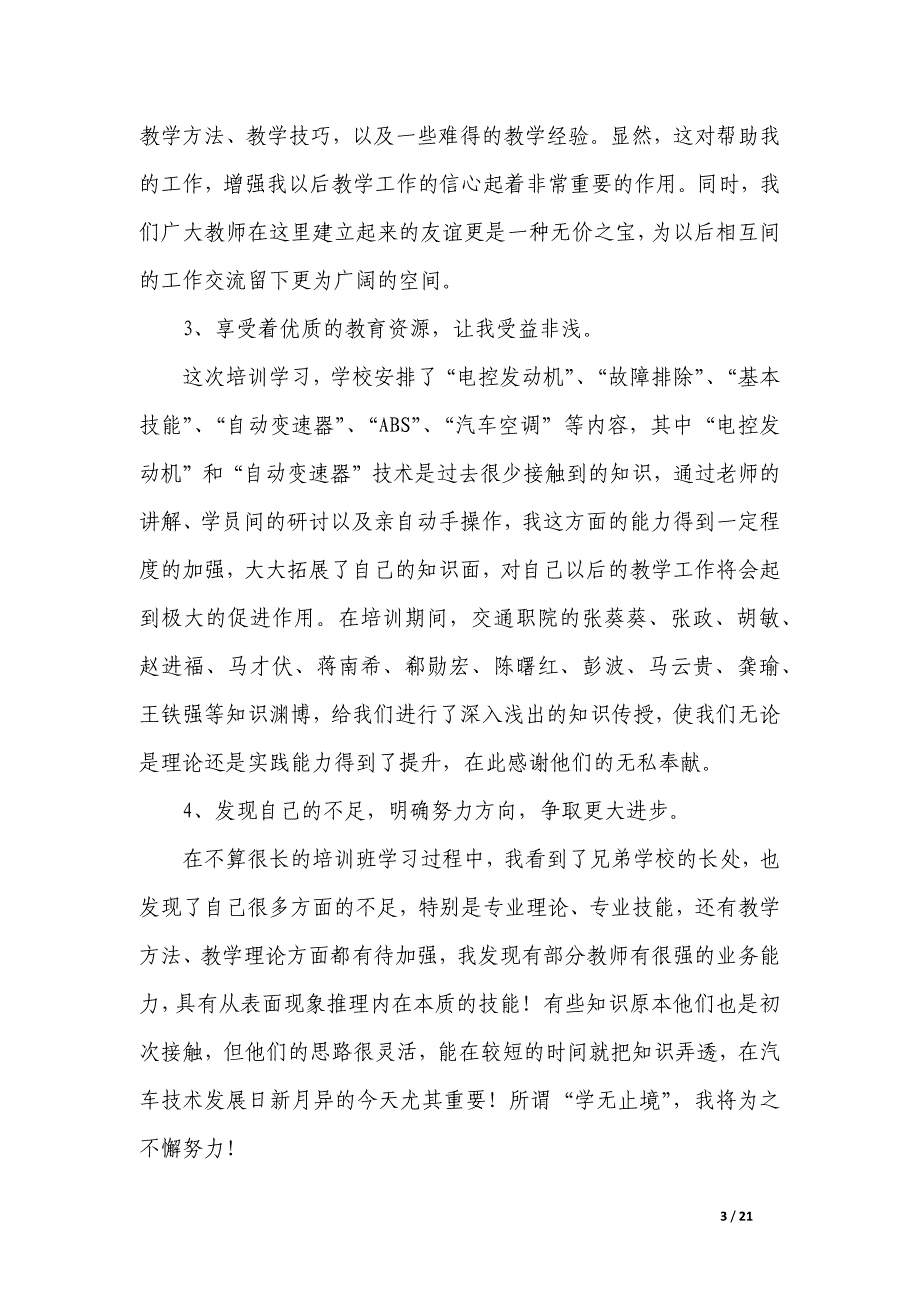 教学方法、教学技巧，以及一些难得的教学经验。显然，这对帮助我
的工作，增强我以后教学工作的信心起着非常重要的作用。同时，我
们广大教师在这里建立起来的友谊更是一种无价之宝，为以后相互间
的工作交流留下更为广阔的空间。
3、享受着优质的教育资源，让我受益非浅。
这次培训学习，学校安排了“电控发动机”、“故障排除”、“基本
技能”、“自动变速器”、“ABS”、“汽车空调” 等内容，其中 “电控发
动机” 和 “自动变速器” 技术是过去很少接触到的知识，通过老师的
讲解、学员问的研讨以及亲自动手操作，我这方面的能力得到一定程
度的加强，大大拓展了自己的知识面，对自己以后的教学工作将会起
到极大的促进作用。在培训期间，交通职院的张葵葵、张政、胡敏、
赵进福、马才伏、蒋南希、郗勋宏、陈曙红、彭波、马云贵、龚瑜、
王铁强等知识渊博，给我们进行了深入浅出的知识传授，使我们无论
是理论还是实践能力得到了提升，在此感谢他们的无私奉献。
4、发现自己的不足，明确努力方向，争取更大进步。
在不算很长的培训班学习过程中，我看到了兄弟学校的长处，也
发现了自己很多方面的不足，特别是专业理论、专业技能，还有教学
方法、教学理论方面都有待加强，我发现有部分教师有很强的业务能
力，具有从表面现象推理内在本质的技能！有些知识原本他们也是初
次接触，但他们的思路很灵活，能在较短的时间就把知识弄透，在汽
车技术发展日新月异的今天尤其重要！所谓 “学无止境”，我将为之
不懈努力！
3 / 21